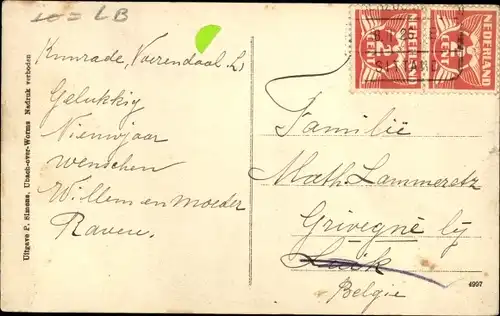 LB
Kunrade, Voerendaal L.
Gelukkig
Nieuwjaar
wenschen
Willem en moeder
Raven.
Uitgave P. Simons, Ubach-over-Worms Nadruk verboden
NEDERLAND
2
CENT
NEDERLAND
CENT
SITTARD
Familie
Math. Lammeretz
Grivegné bij
Luik
Belgie
4997